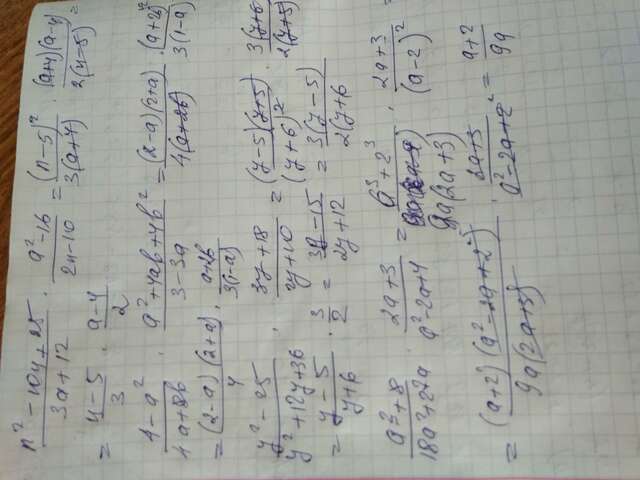 n² - 10n + 25 / 3a + 12 · a² - 16 / 2n - 10 = (n - 5)² / 3(a+4) · (a+4)(a-4) / 2(n-5) =
= n - 5 / 3 · a - 4 / 2
4 - a² / 4a + 8b · a² + 4ab + 4b² / 3 - 3a = (2-a)(2+a) / 4(a+2b) · (a+2b)² / 3(1-a)
= (2-a)(2+a) / 4 · a+2b / 3(1-a)
y² - 25 / y² + 12y + 36 · 3y + 18 / 2y + 10 = (y-5)(y+5) / (y+6)² · 3(y+6) / 2(y+5)
= y - 5 / y + 6 · 3 / 2 = 3y - 15 / 2y + 12 = 3(y-5) / 2(y+6
a³ + 8 / 18a² + 27a · 2a + 3 / a² - 2a + 4 = a³ + 2³ / 9a(2a+3) · 2a + 3 / (a-2)² =
= (a+2)(a² - 2a + 2²) / 9a(2a+3) · 2a+3 / a² - 2a + 2² = a+2 / 9a